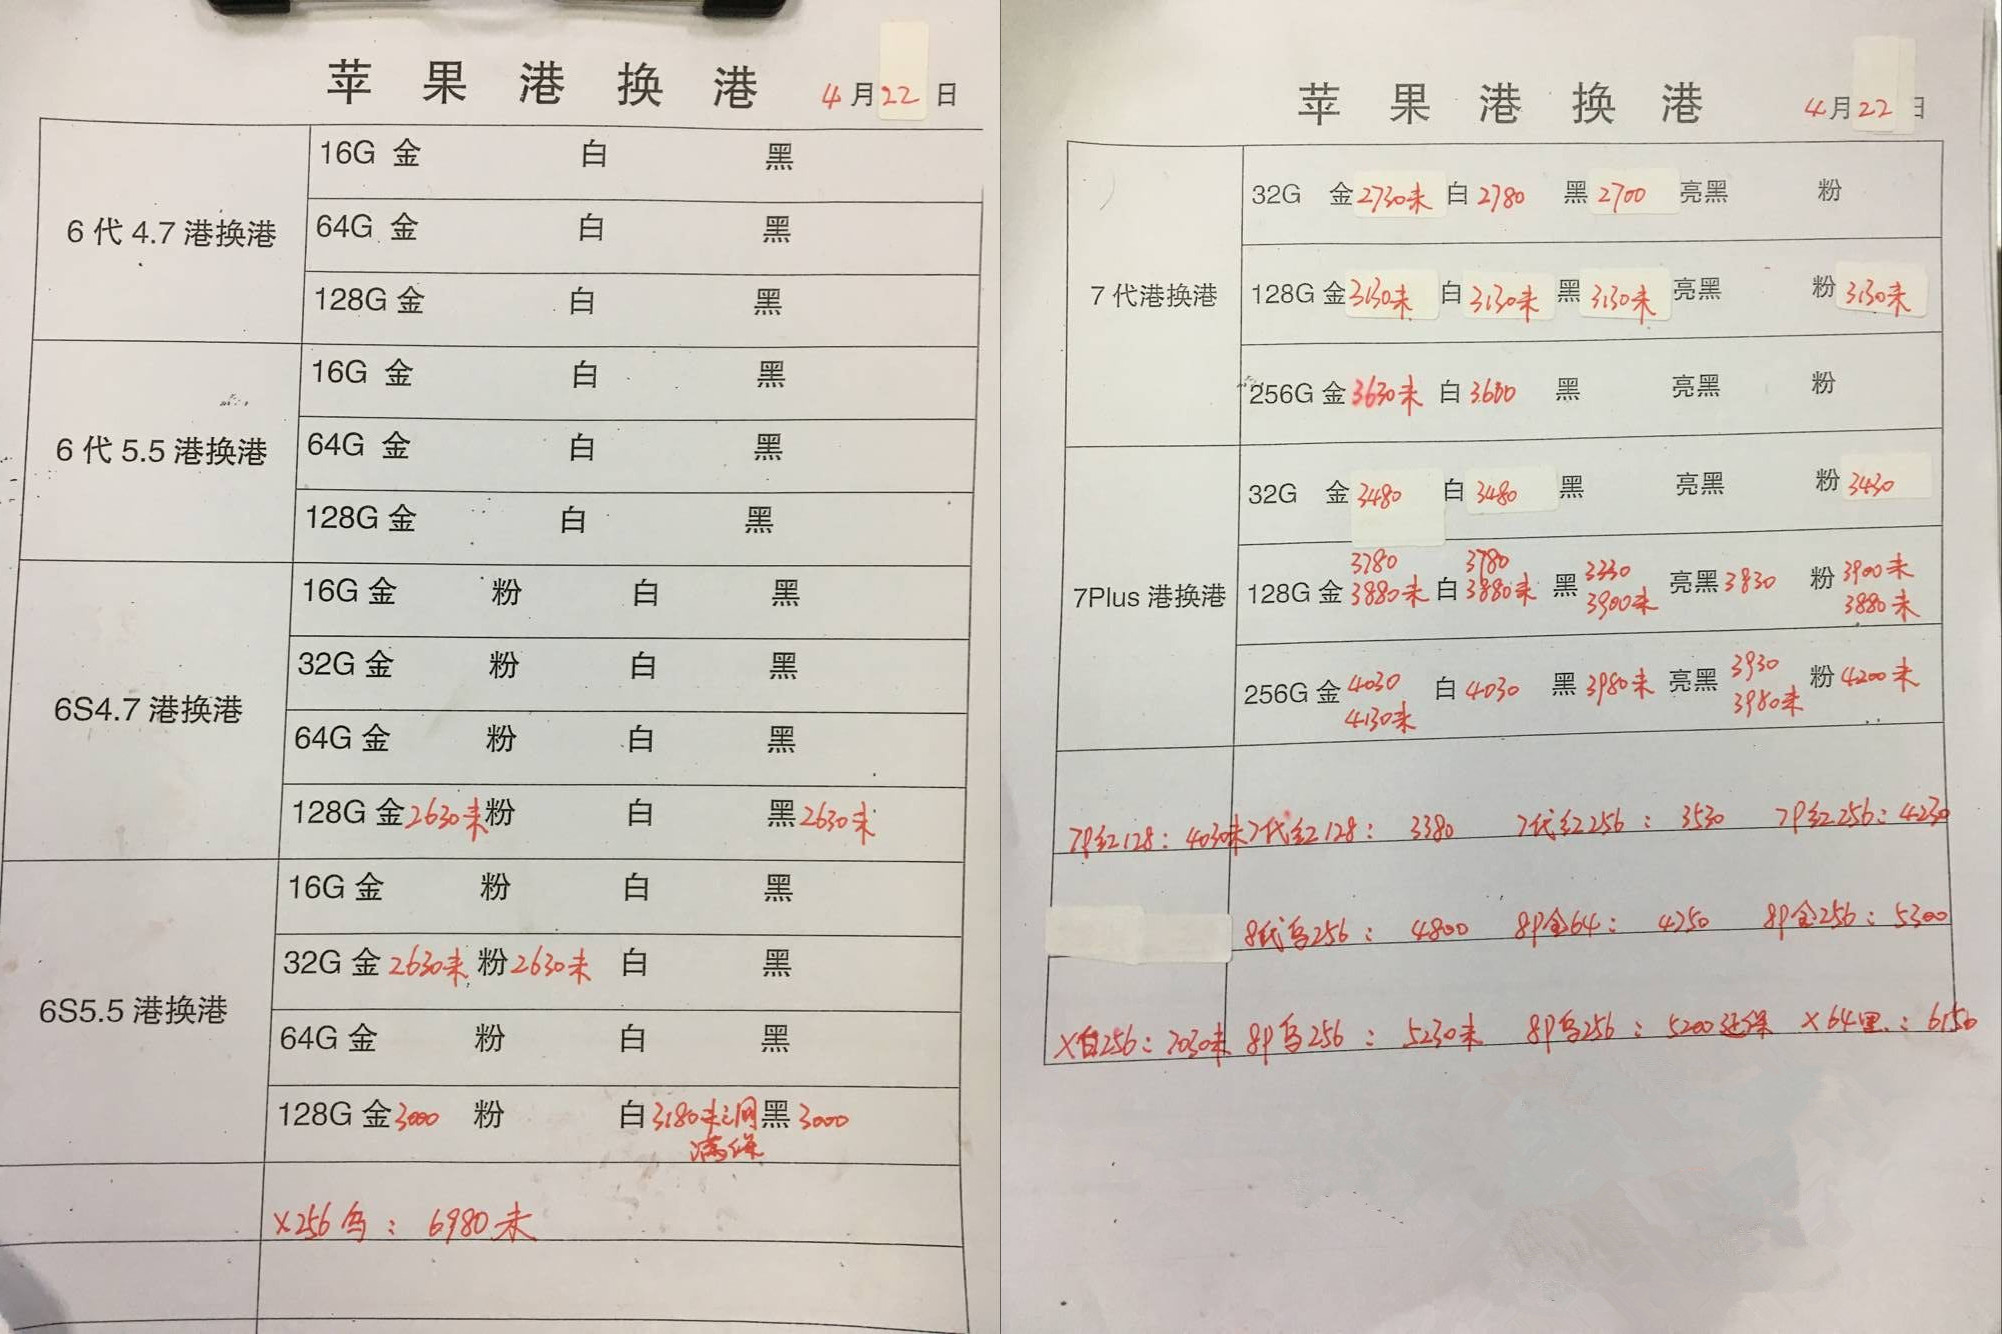 苹果港换港 4月22日
6代4.7港换港
16G 金 白 黑
64G 金 白 黑
128G 金 白 黑
6代5.5港换港
16G 金 白 黑
64G 金 白 黑
128G 金 白 黑
6S4.7港换港
16G 金 粉 白 黑
32G 金 粉 白 黑
64G 金 粉 白 黑
128G 金 2630未 粉 白 黑 2630未
6S5.5港换港
16G 金 粉 白 黑
32G 金 2630未 粉 2630未 白 黑
64G 金 粉 白 黑
128G 金 3000 粉 白 3180未三网 黑 3000
满保
X256乌：6980未
苹果港换港 4月22日
7代港换港
32G 金 2730未 白 2780 黑 2700 亮黑 粉
128G 金 3130未 白 3130未 黑 3130未 亮黑 粉 3130未
256G 金 3630未 白 3600 黑 亮黑 粉
7Plus港换港
32G 金 3480 白 3480 黑 亮黑 粉 3430
3780 3780
128G 金 3880未 白 3880未 黑 3900未 亮黑 3830 粉 3900未
3880未
256G 金 4030 白 4030 黑 3980未 亮黑 3930 粉 4200未
4130未 3980未
7P红128：4030未 7代红128：3380 7代红256：3530 7P红256：4230
8代乌256：4800 8P金64：4250 8P金256：5300
X白256：7030未 8P乌256：5230未 8P乌256：5200延保 X64黑：6150